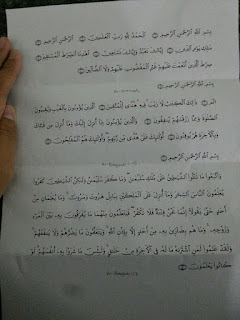 بِسْمِ اللَّهِ الرَّحْمَٰنِ الرَّحِيمِ ۝ الْحَمْدُ لِلَّهِ رَبِّ الْعَالَمِينَ ۝ الرَّحْمَٰنِ الرَّحِيمِ ۝
مَالِكِ يَوْمِ الدِّينِ ۝ إِيَّاكَ نَعْبُدُ وَإِيَّاكَ نَسْتَعِينُ ۝ اهْدِنَا الصِّرَاطَ الْمُسْتَقِيمَ ۝
صِرَاطَ الَّذِينَ أَنْعَمْتَ عَلَيْهِمْ غَيْرِ الْمَغْضُوبِ عَلَيْهِمْ وَلَا الضَّالِّينَ ۝
بِسْمِ اللَّهِ الرَّحْمَٰنِ الرَّحِيمِ
الم ۝ ذَٰلِكَ الْكِتَابُ لَا رَيْبَ ۛ فِيهِ ۛ هُدًى لِلْمُتَّقِينَ ۝ الَّذِينَ يُؤْمِنُونَ بِالْغَيْبِ وَيُقِيمُونَ
الصَّلَاةَ وَمِمَّا رَزَقْنَاهُمْ يُنْفِقُونَ ۝ وَالَّذِينَ يُؤْمِنُونَ بِمَا أُنْزِلَ إِلَيْكَ وَمَا أُنْزِلَ مِنْ قَبْلِكَ
وَبِالْآخِرَةِ هُمْ يُوقِنُونَ ۝ أُولَٰئِكَ عَلَىٰ هُدًى مِنْ رَبِّهِمْ ۖ وَأُولَٰئِكَ هُمُ الْمُفْلِحُونَ ۝
بِسْمِ اللَّهِ الرَّحْمَٰنِ الرَّحِيمِ
وَاتَّبَعُوا مَا تَتْلُو الشَّيَاطِينُ عَلَىٰ مُلْكِ سُلَيْمَانَ ۖ وَمَا كَفَرَ سُلَيْمَانُ وَلَٰكِنَّ الشَّيَاطِينَ كَفَرُوا
يُعَلِّمُونَ النَّاسَ السِّحْرَ وَمَا أُنْزِلَ عَلَى الْمَلَكَيْنِ بِبَابِلَ هَارُوتَ وَمَارُوتَ ۚ وَمَا يُعَلِّمَانِ مِنْ
أَحَدٍ حَتَّىٰ يَقُولَا إِنَّمَا نَحْنُ فِتْنَةٌ فَلَا تَكْفُرْ ۖ فَيَتَعَلَّمُونَ مِنْهُمَا مَا يُفَرِّقُونَ بِهِ بَيْنَ الْمَرْءِ
وَزَوْجِهِ ۚ وَمَا هُمْ بِضَارِّينَ بِهِ مِنْ أَحَدٍ إِلَّا بِإِذْنِ اللَّهِ ۚ وَيَتَعَلَّمُونَ مَا يَضُرُّهُمْ وَلَا يَنْفَعُهُمْ ۚ
وَلَقَدْ عَلِمُوا لَمَنِ اشْتَرَاهُ مَا لَهُ فِي الْآخِرَةِ مِنْ خَلَاقٍ ۚ وَلَبِئْسَ مَا شَرَوْا بِهِ أَنْفُسَهُمْ ۚ لَوْ
كَانُوا يَعْلَمُونَ ۝